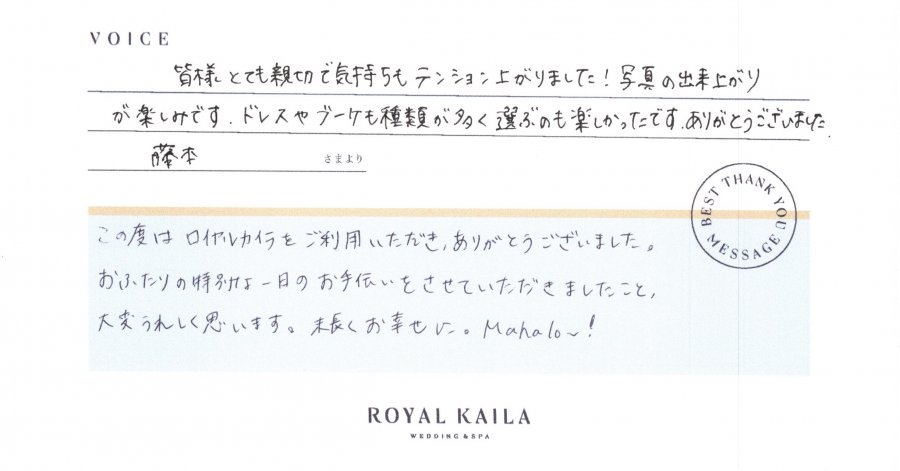 VOICE
皆様とても親切で気持ちもテンション上がりました！写真の出来上がり
が楽しみです。ドレスやブーケも種類が多く選ぶのも楽しかったです。ありがとうございました
藤本 さまより
BEST THANK YOU MESSAGE
この度はロイヤルカイラをご利用いただき、ありがとうございました。
おふたりの特別な一日のお手伝いをさせていただきましたこと、
大変うれしく思います。末長くお幸せに。Mahalo～！
ROYAL KAILA
WEDDING & SPA